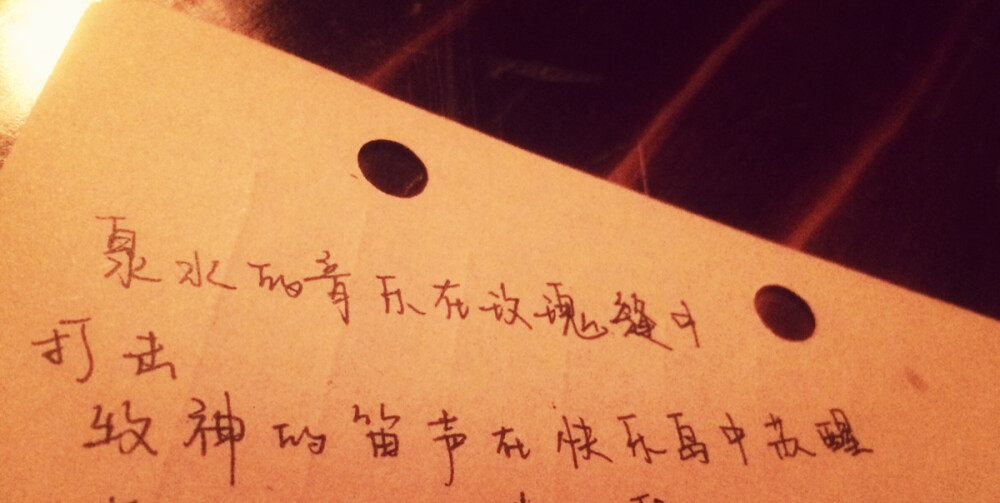 泉水的音乐在玫瑰缝中
打击
牧神的笛声在快乐岛中苏醒